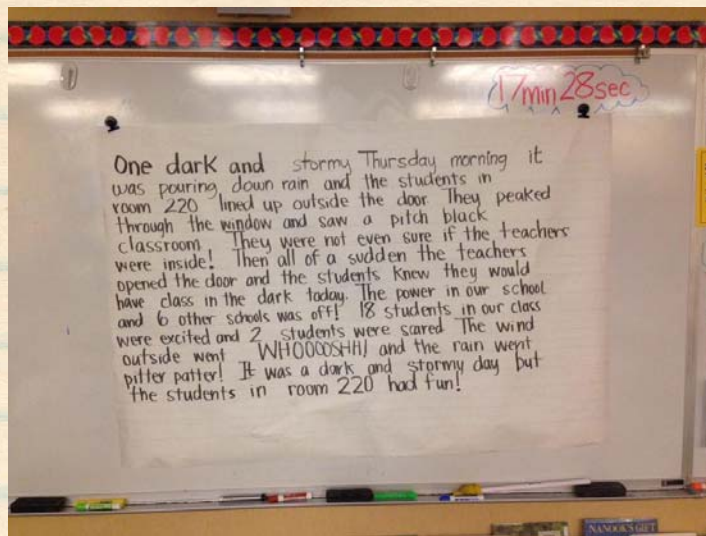 17min 28sec
One dark and stormy Thursday morning it
was pouring down rain and the students in
room 220 lined up outside the door They peaked
through the window and saw a pitch black
classroom They were not even sure if the teachers
were inside! Then all of a sudden the teachers
opened the door and the students knew they would
have class in the dark today. The power in our school
and 6 other schools was off! 18 students in our class
were excited and 2 students were scared The wind
outside went WHOOOOSHH! and the rain went
pitter patter! It was a dark and stormy day but
the students in room 220 had fun!
NANOOK'S GIFT